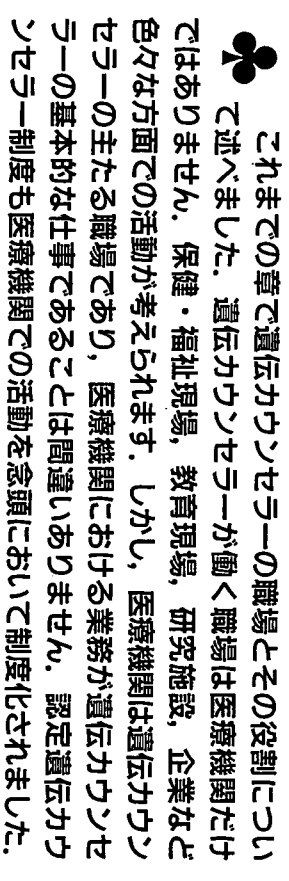 これまでの章で遺伝カウンセラーの職場とその役割につい
て述べました．遺伝カウンセラーが働く職場は医療機関だけ
ではありません．保健・福祉現場，教育現場，研究施設，企業など
色々な方面での活動が考えられます．しかし，医療機関は遺伝カウン
セラーの主たる職場であり，医療機関における業務が遺伝カウンセ
ラーの基本的な仕事であることは間違いありません．認定遺伝カウ
ンセラー制度も医療機関での活動を念頭において制度化されました．